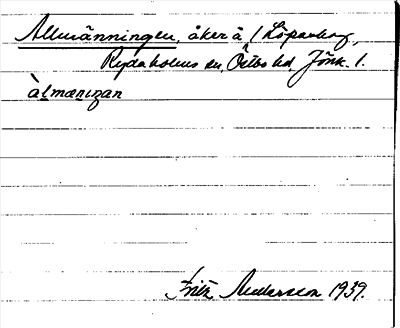 Allmänningen, åker å 1 Löparberg,
Rydaholms sn, Östbo hd. Jönk. l.
àlmæniŋan
Fritz Andersson 1939.